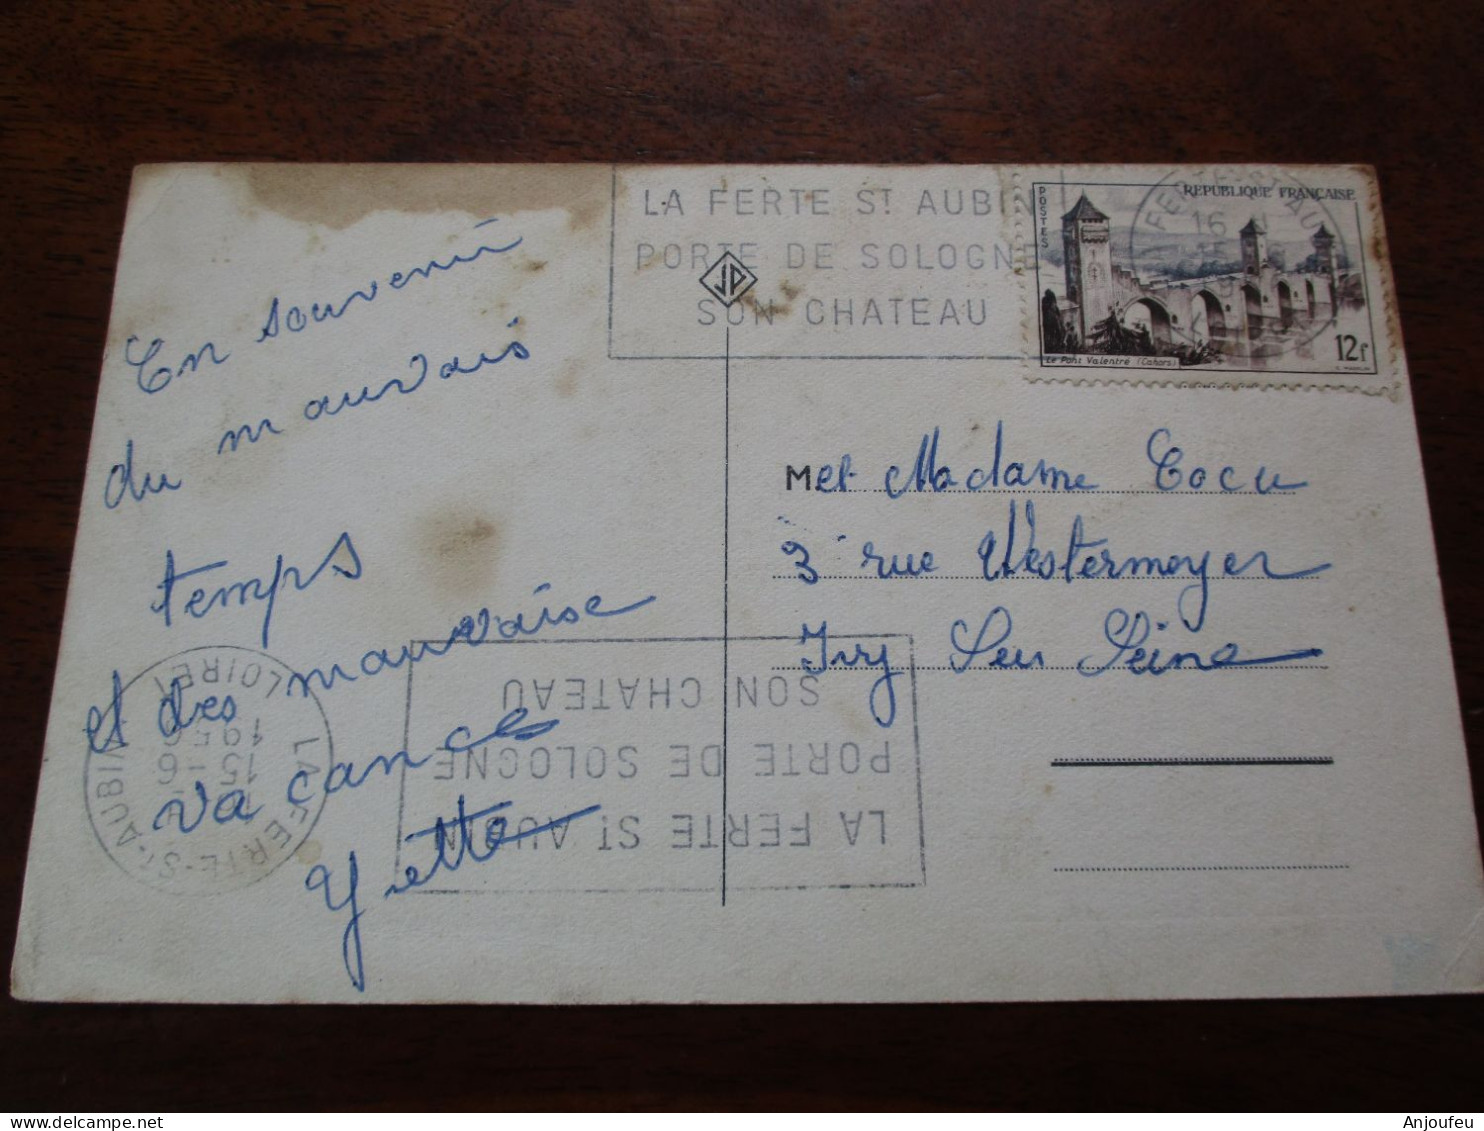 En souvenir
du mauvais
temps
et des mauvaise
vacances
Yvette
LA FERTE ST AUBIN
PORTE DE SOLOGNE
SON CHATEAU
JD
POSTES
REPUBLIQUE FRANÇAISE
Le Pont Valentré (Cahors)
12f
FERTE-ST-AU
16
M et Madame Cocu
3 rue Westermeyer
Ivry Seu Seine
LA FERTE ST AUBIN
PORTE DE SOLOGNE
SON CHATEAU
LA FERTE-ST-AUBIN
LOIRET
15-6
1956
delcampe.net
Anjoufeu